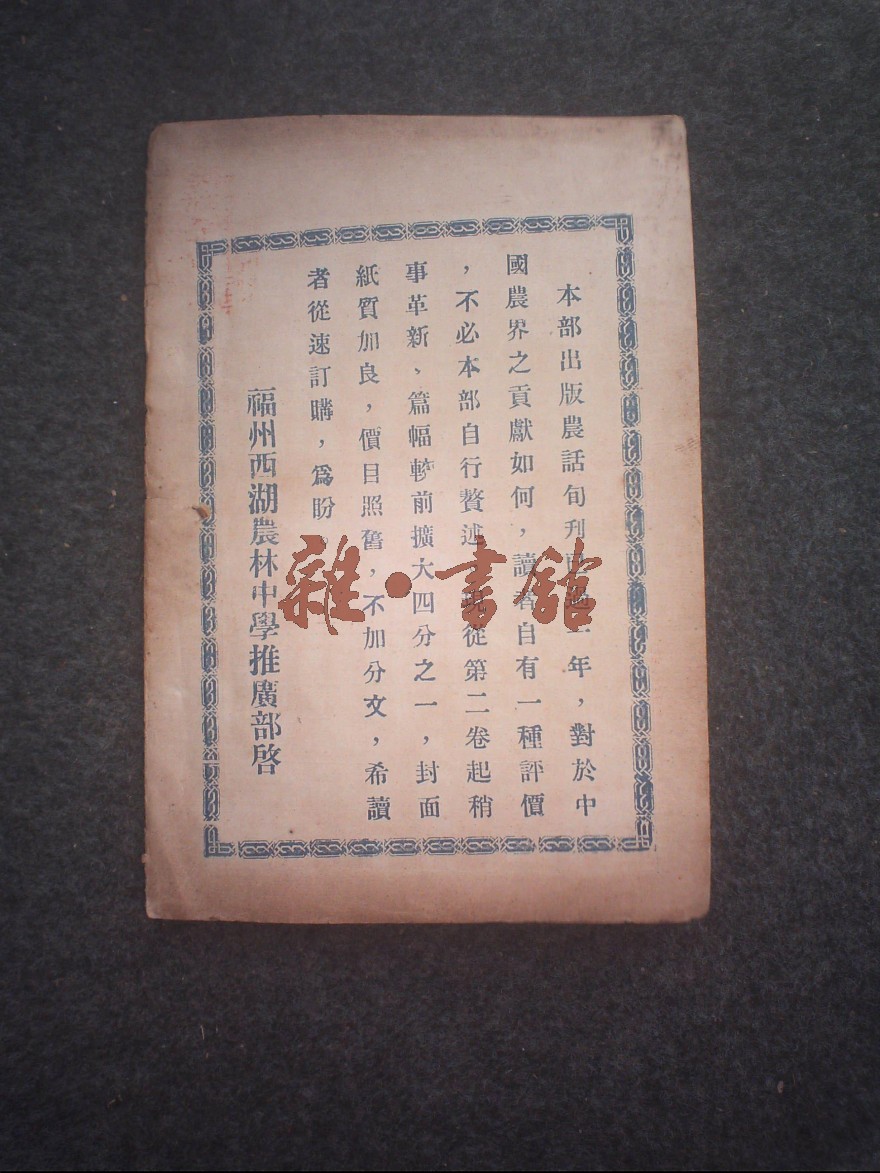 本部出版農話旬刊已過一年，對於中
國農界之貢獻如何，讀者自有一種評價
，不必本部自行贅述，現從第二卷起稍
事革新、篇幅較前擴大四分之一，封面
紙質加良，價目照舊，不加分文，希讀
者從速訂購，爲盼。
福州西湖農林中學推廣部啓
雜·書館